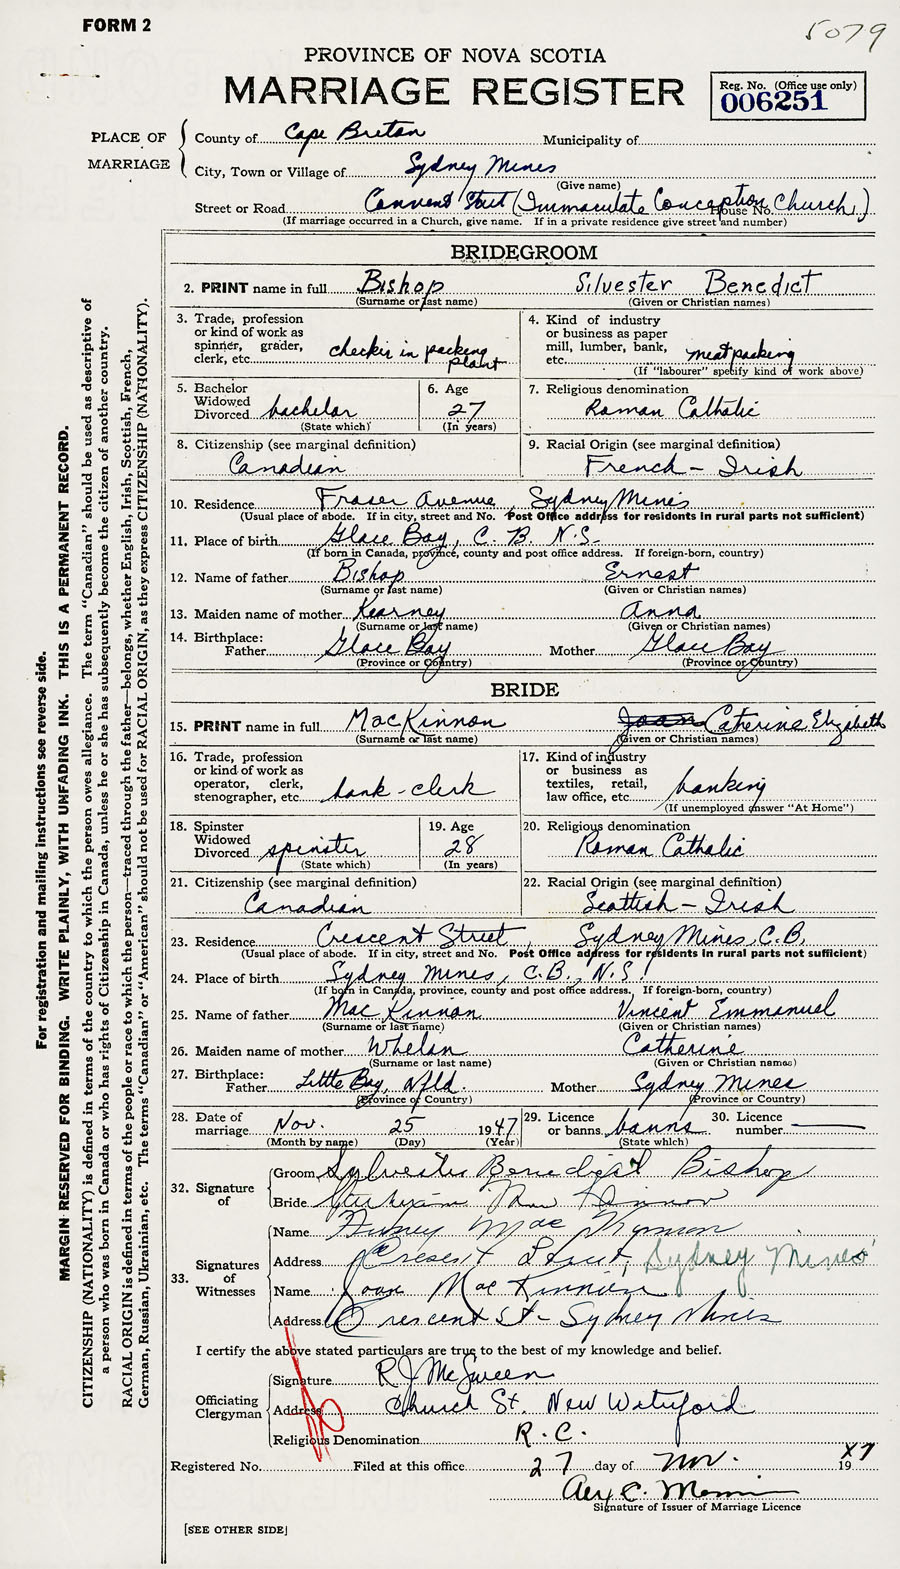 FORM 2
5079
PROVINCE OF NOVA SCOTIA
MARRIAGE REGISTER
Reg. No. (Office use only)
006251
PLACE OF MARRIAGE
County of Cape Breton Municipality of
City, Town or Village of Sydney Mines
(Give name)
Street or Road Convent Street (Immaculate Conception Church) House No.
(If marriage occurred in a Church, give name. If in a private residence give street and number)
BRIDEGROOM
2. PRINT name in full Bishop Silvester Benedict
(Surname or last name) (Given or Christian names)
3. Trade, profession or kind of work as spinner, grader, clerk, etc. checker in packing plant
4. Kind of industry or business as paper mill, lumber, bank, etc. meat packing
(If "labourer" specify kind of work above)
5. Bachelor Widowed Divorced bachelor
(State which)
6. Age 27
(In years)
7. Religious denomination Roman Catholic
8. Citizenship (see marginal definition) Canadian
9. Racial Origin (see marginal definition) French - Irish
10. Residence Fraser Avenue, Sydney Mines
(Usual place of abode. If in city, street and No. Post Office address for residents in rural parts not sufficient)
11. Place of birth Glace Bay, C. B. N.S.
(If born in Canada, province, county and post office address. If foreign-born, country)
12. Name of father Bishop Ernest
(Surname or last name) (Given or Christian names)
13. Maiden name of mother Kearney Anna
(Surname or last name) (Given or Christian names)
14. Birthplace:
Father Glace Bay Mother Glace Bay
(Province or Country) (Province or Country)
BRIDE
15. PRINT name in full MacKinnon Joan Catherine Elizabeth
(Surname or last name) (Given or Christian names)
16. Trade, profession or kind of work as operator, clerk, stenographer, etc. bank-clerk
17. Kind of industry or business as textiles, retail, law office, etc. banking
(If unemployed answer "At Home")
18. Spinster Widowed Divorced spinster
(State which)
19. Age 28
(In years)
20. Religious denomination Roman Catholic
21. Citizenship (see marginal definition) Canadian
22. Racial Origin (see marginal definition) Scottish - Irish
23. Residence Crescent Street, Sydney Mines, C.B.
(Usual place of abode. If in city, street and No. Post Office address for residents in rural parts not sufficient)
24. Place of birth Sydney Mines, C.B., N.S.
(If born in Canada, province, county and post office address. If foreign-born, country)
25. Name of father MacKinnon Vincent Emmanuel
(Surname or last name) (Given or Christian names)
26. Maiden name of mother Whelan Catherine
(Surname or last name) (Given or Christian names)
27. Birthplace:
Father Little Bay, Nfld. Mother Sydney Mines
(Province or Country) (Province or Country)
28. Date of marriage Nov. 25 1947
(Month by name) (Day) (Year)
29. Licence or banns banns
(State which)
30. Licence number
32. Signature of
Groom Sylvester Benedict Bishop
Bride
33. Signatures of Witnesses
Name
Address Crescent Street, Sydney Mines
Name Joan MacKinnon
Address Crescent St - Sydney Mines
I certify the above stated particulars are true to the best of my knowledge and belief.
Officiating Clergyman
Signature R J McSween
Address Church St. New Waterford
Religious Denomination R.C.
Registered No. Filed at this office 27 day of Nov. 1947
Signature of Issuer of Marriage Licence
[SEE OTHER SIDE]
For registration and mailing instructions see reverse side.
MARGIN RESERVED FOR BINDING. WRITE PLAINLY, WITH UNFADING INK. THIS IS A PERMANENT RECORD.
CITIZENSHIP (NATIONALITY) is defined in terms of the country to which the person owes allegiance. The term "Canadian" should be used as descriptive of
a person who was born in Canada or who has rights of Citizenship in Canada, unless he or she has subsequently become the citizen of another country.
RACIAL ORIGIN is defined in terms of the people or race to which the person—traced through the father—belongs, whether English, Irish, Scottish, French,
German, Russian, Ukrainian, etc. The terms "Canadian" or "American" should not be used for RACIAL ORIGIN, as they express CITIZENSHIP (NATIONALITY).